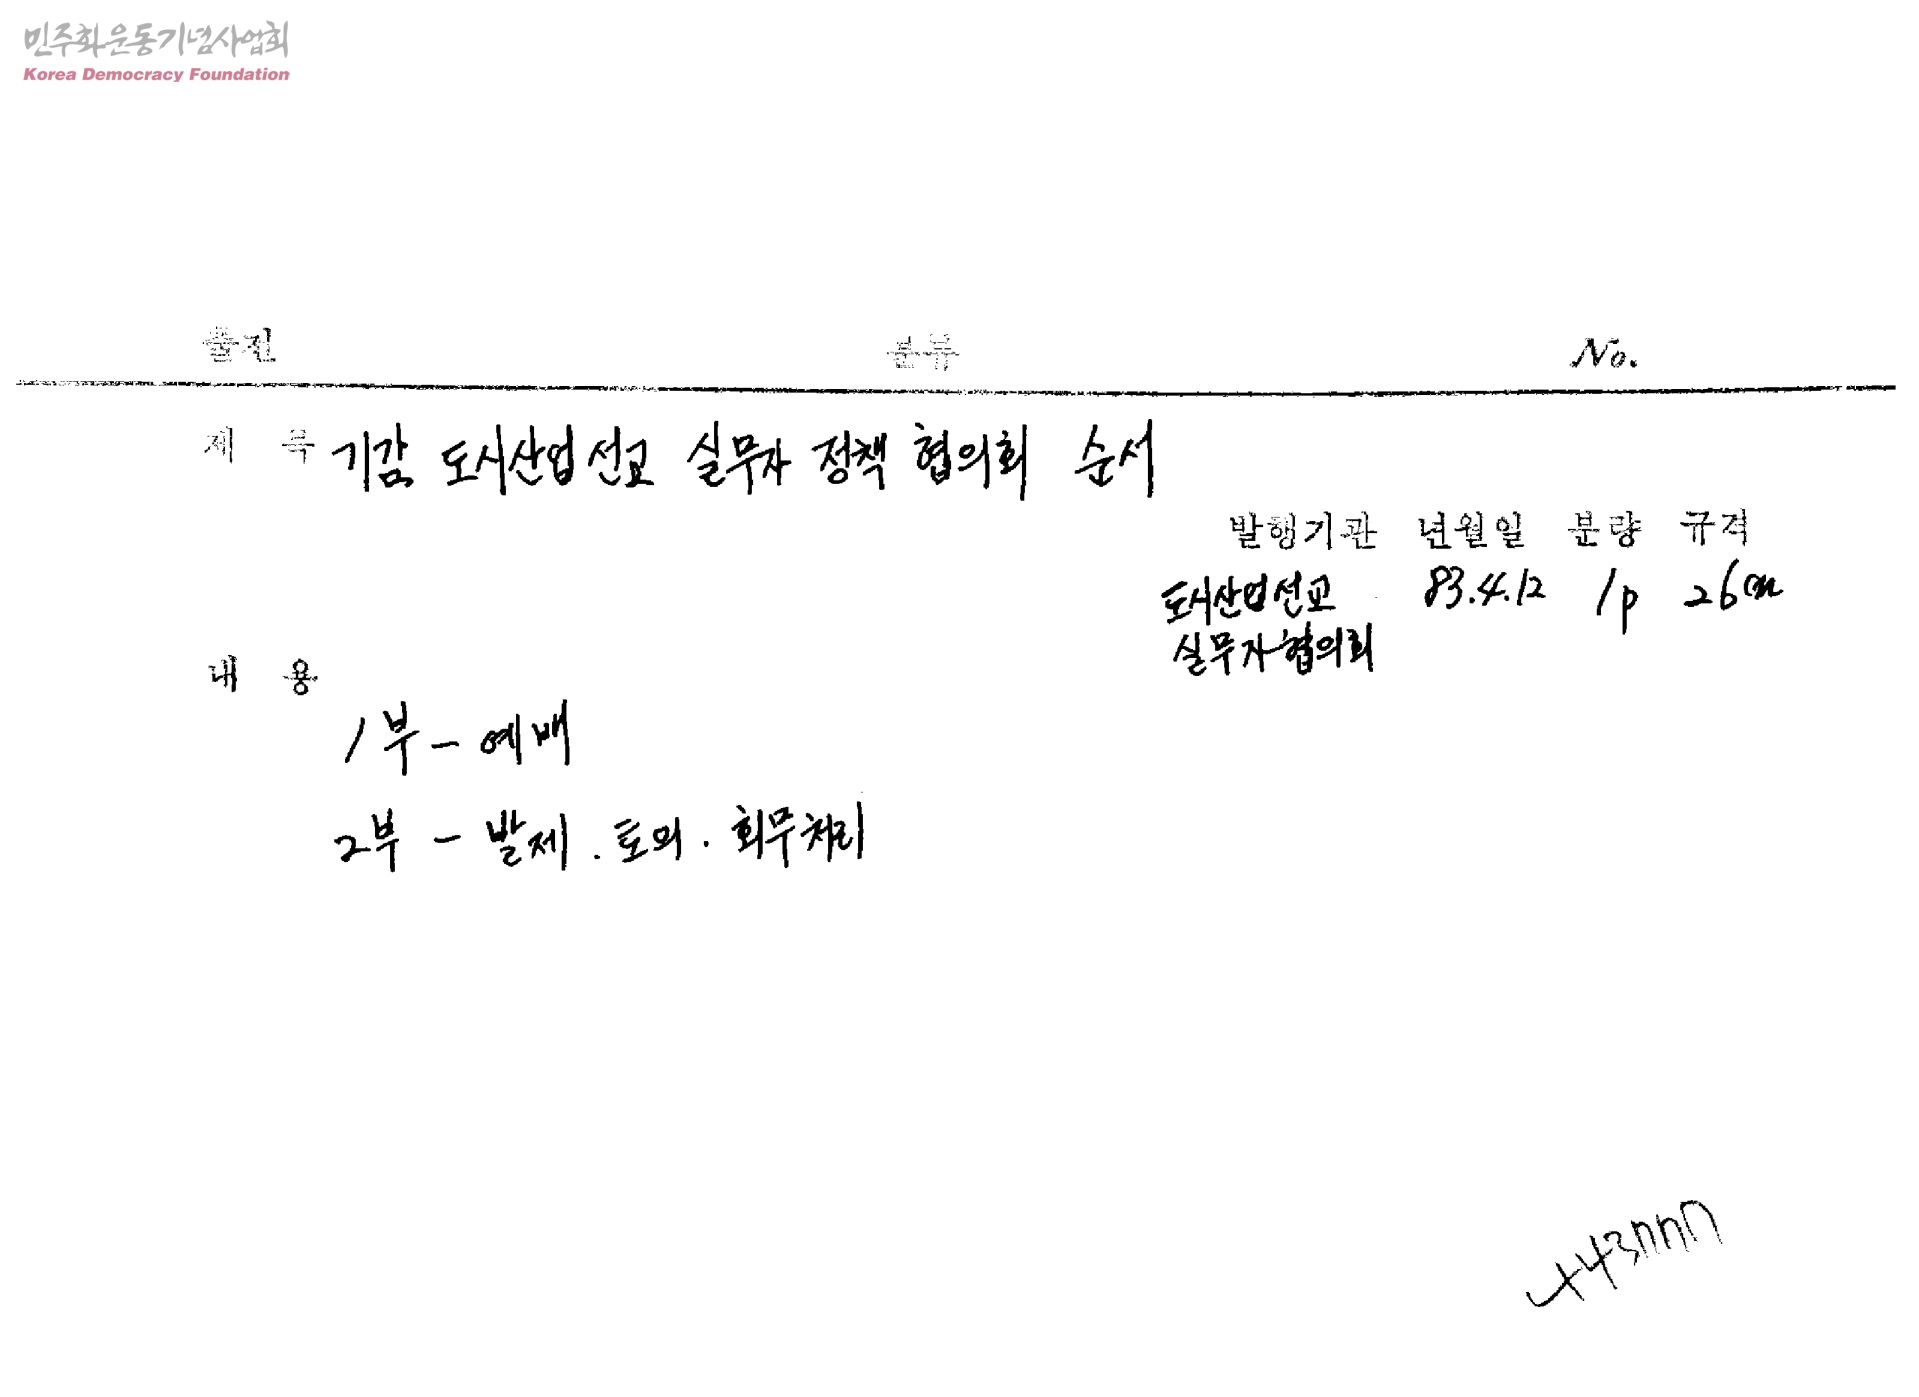 민주화운동기념사업회
Korea Democracy Foundation
출전 분류 No.
제 목 기감 도시산업선교 실무자 정책 협의회 순서
발행기관 년월일 분량 규격
도시산업선교 83.4.12 1p 26cm
실무자협의회
내 용
1부 - 예배
2부 - 발제 . 토의 . 회무처리